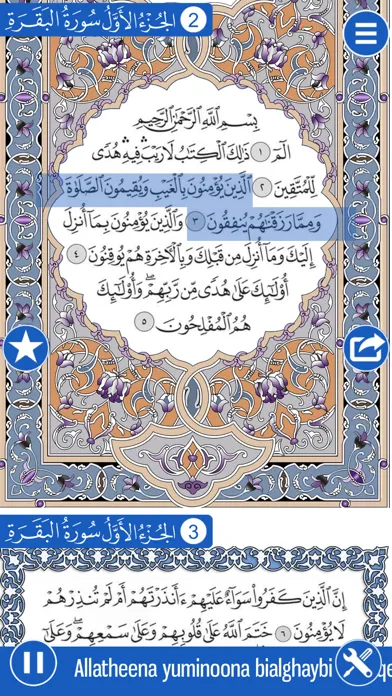 الجُزْءُ الأَوَّلُ سُورَةُ البَقَرَةِ 2
بِسْمِ اللَّهِ الرَّحْمَٰنِ الرَّحِيمِ
الٓمٓ ١ ذَٰلِكَ الْكِتَابُ لَا رَيْبَ ۛ فِيهِ ۛ هُدًى
لِّلْمُتَّقِينَ ٢ الَّذِينَ يُؤْمِنُونَ بِالْغَيْبِ وَيُقِيمُونَ الصَّلَوٰةَ
وَمِمَّا رَزَقْنَٰهُمْ يُنفِقُونَ ٣ وَالَّذِينَ يُؤْمِنُونَ بِمَا أُنزِلَ
إِلَيْكَ وَمَا أُنزِلَ مِن قَبْلِكَ وَبِالْآخِرَةِ هُمْ يُوقِنُونَ ٤
أُولَٰئِكَ عَلَىٰ هُدًى مِّن رَّبِّهِمْ ۖ وَأُولَٰئِكَ
هُمُ الْمُفْلِحُونَ ٥
الجُزْءُ الأَوَّلُ سُورَةُ البَقَرَةِ 3
إِنَّ الَّذِينَ كَفَرُوا سَوَاءٌ عَلَيْهِمْ ءَأَنذَرْتَهُمْ أَمْ لَمْ تُنذِرْهُمْ
لَا يُؤْمِنُونَ ٦ خَتَمَ اللَّهُ عَلَىٰ قُلُوبِهِمْ وَعَلَىٰ سَمْعِهِمْ ۖ وَعَلَىٰ
Allatheena yuminoona bialghaybi